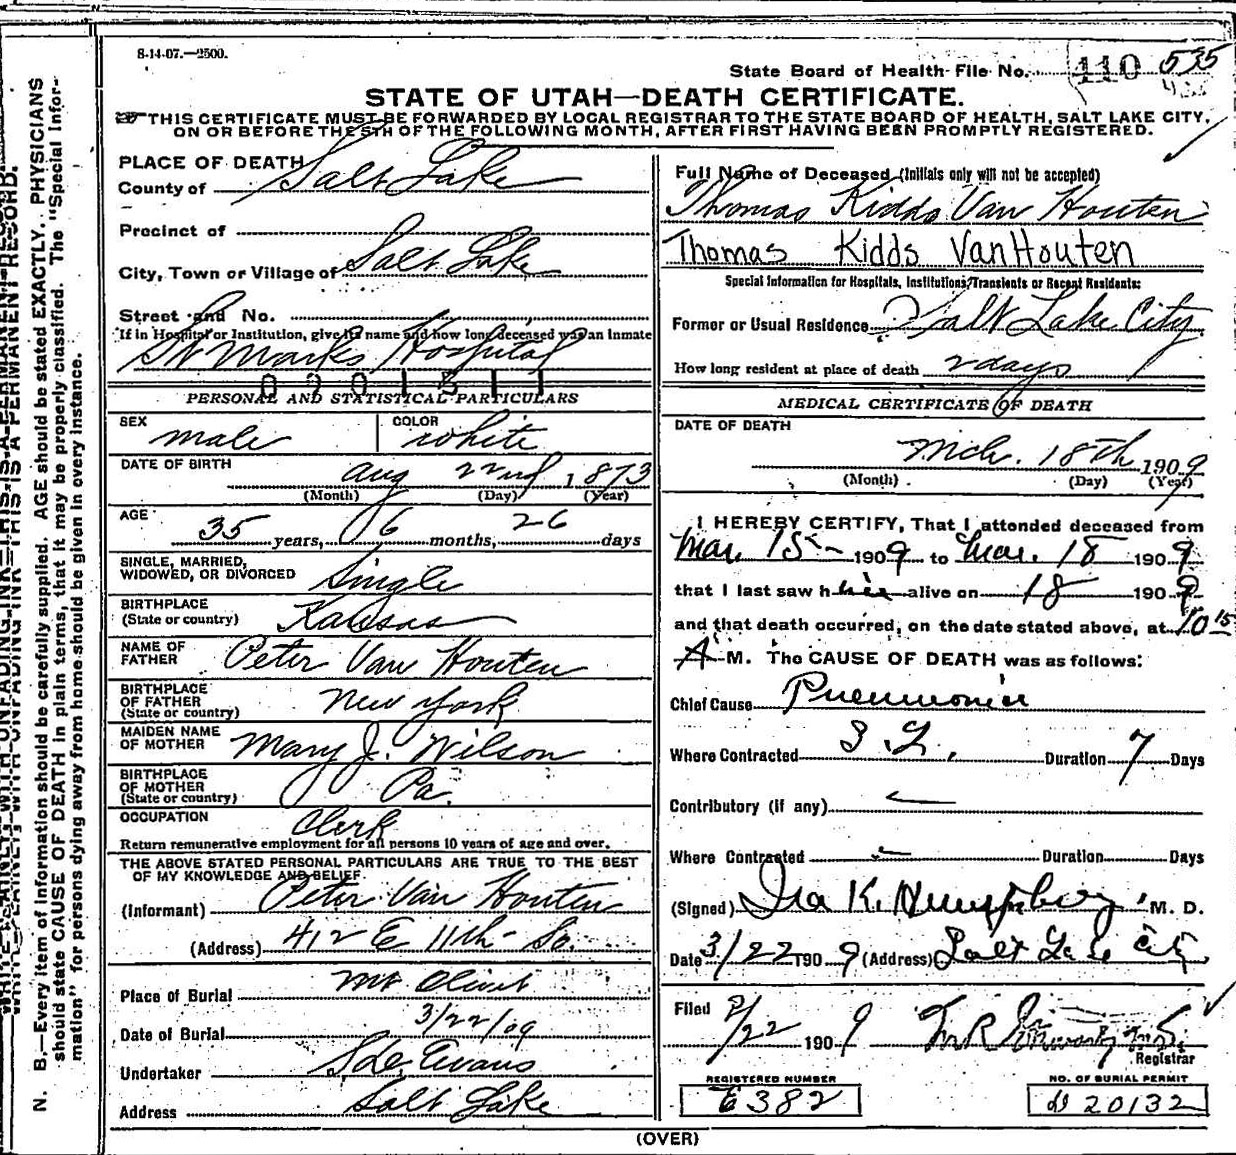 8-14-07.—2500.
State Board of Health File No. 110 535
STATE OF UTAH—DEATH CERTIFICATE.
THIS CERTIFICATE MUST BE FORWARDED BY LOCAL REGISTRAR TO THE STATE BOARD OF HEALTH, SALT LAKE CITY,
ON OR BEFORE THE 5TH OF THE FOLLOWING MONTH, AFTER FIRST HAVING BEEN PROMPTLY REGISTERED.
PLACE OF DEATH
County of Salt Lake
Precinct of
City, Town or Village of Salt Lake
Street and No.
If in Hospital or Institution, give its name and how long deceased was an inmate
St Marks Hospital
PERSONAL AND STATISTICAL PARTICULARS
SEX male COLOR white
DATE OF BIRTH Aug 22nd, 1873
(Month) (Day) (Year)
AGE 35 years, 6 months, 26 days
SINGLE, MARRIED,
WIDOWED, OR DIVORCED Single
BIRTHPLACE
(State or country) Kansas
NAME OF
FATHER Peter Van Houten
BIRTHPLACE
OF FATHER
(State or country) New York
MAIDEN NAME
OF MOTHER Mary J. Wilson
BIRTHPLACE
OF MOTHER
(State or country) Pa.
OCCUPATION Clerk
Return remunerative employment for all persons 10 years of age and over.
THE ABOVE STATED PERSONAL PARTICULARS ARE TRUE TO THE BEST
OF MY KNOWLEDGE AND BELIEF.
(Informant) Peter Van Houten
(Address) 412 E 11th So.
Place of Burial Mt Olivet
Date of Burial 3/22/09
Undertaker Evans
Address Salt Lake
Full Name of Deceased (Initials only will not be accepted)
Thomas Kidds Van Houten
Thomas Kidds VanHouten
Special Information for Hospitals, Institutions, Transients or Recent Residents:
Former or Usual Residence Salt Lake City
How long resident at place of death 2 days
MEDICAL CERTIFICATE OF DEATH
DATE OF DEATH
Mch. 18th 1909
(Month) (Day) (Year)
I HEREBY CERTIFY, That I attended deceased from
Mar. 15 1909 to Mar. 18 1909
that I last saw him alive on 18 1909
and that death occurred, on the date stated above, at 10 15
A M. The CAUSE OF DEATH was as follows:
Chief Cause Pneumonia
Where Contracted S. L. Duration 7 Days
Contributory (if any)
Where Contracted Duration Days
(Signed) Ira K. Humphrey M. D.
Date 3/22 1909 (Address) Salt Lake City
Filed 3/22 1909
Registrar
REGISTERED NUMBER
E 382
NO. OF BURIAL PERMIT
20132
(OVER)
WRITE PLAINLY WITH UNFADING INK—THIS IS A PERMANENT RECORD.
N. B.—Every item of information should be carefully supplied. AGE should be stated EXACTLY. PHYSICIANS
should state CAUSE OF DEATH in plain terms, that it may be properly classified. The "Special Infor-
mation" for persons dying away from home should be given in every instance.